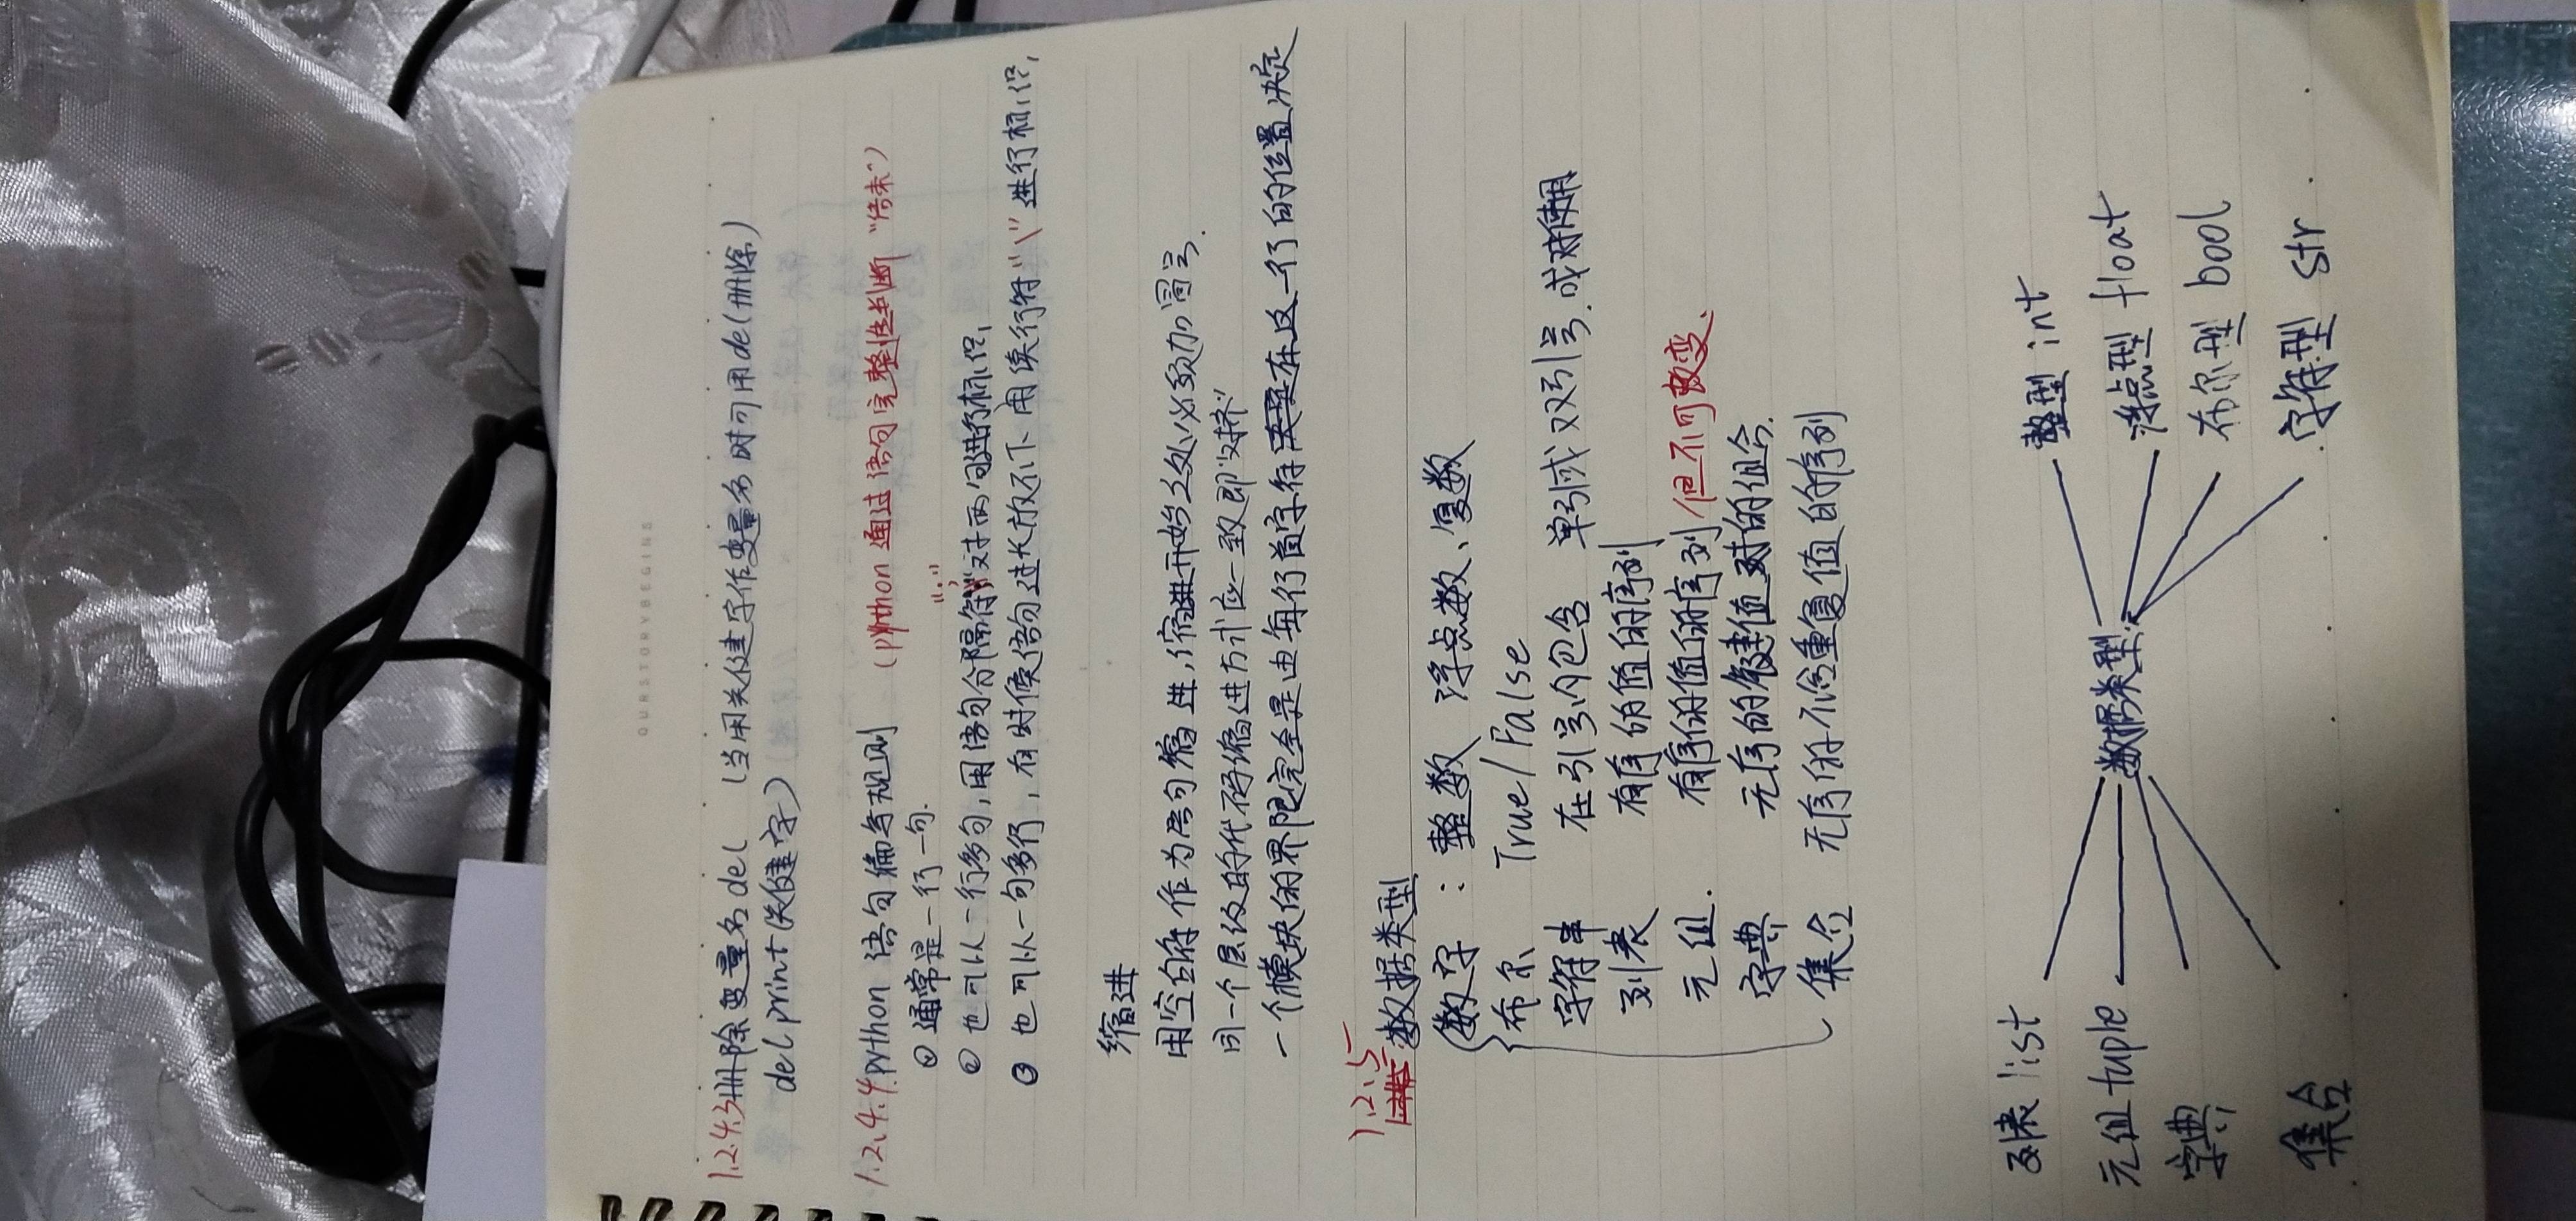 OURSTORYBEGINS
1.2.4.3 删除变量名 del (当用关健字作变量名时可用del删除)
del print (关健字)
1.2.4.4 python 语句编写规则 (python 通过语句完整性判断 “结束”)
① 通常是一行一句.
② 也可以一行多句, 用语句分隔符“;”对两句进行标记,
③ 也可以一句多行, 有时候语句过长放不下 用续行符“\” 进行标记,
缩进
用空白符作为语句缩进, 缩进开始之处必须加冒号.
同一个层级的代码缩进方式应一致即“对挤”
一个模块的界限完全是由每行首字符在这一行的位置决定
1.2.5 数据类型
数字 : 整数 浮点数、复数
布尔 True/False
字符串 在引号内包含 单引或双引号. 或对使用
列表 有序的值的序列
元组. 有序的值的序列 但不可改变、
字典 无序的健值对的组合.
集合 无序的不含重复值的序列
列表 list
元组 tuple
字典
集合
数据类型
整型 int
浮点型 float
布尔型 bool
字符型 str